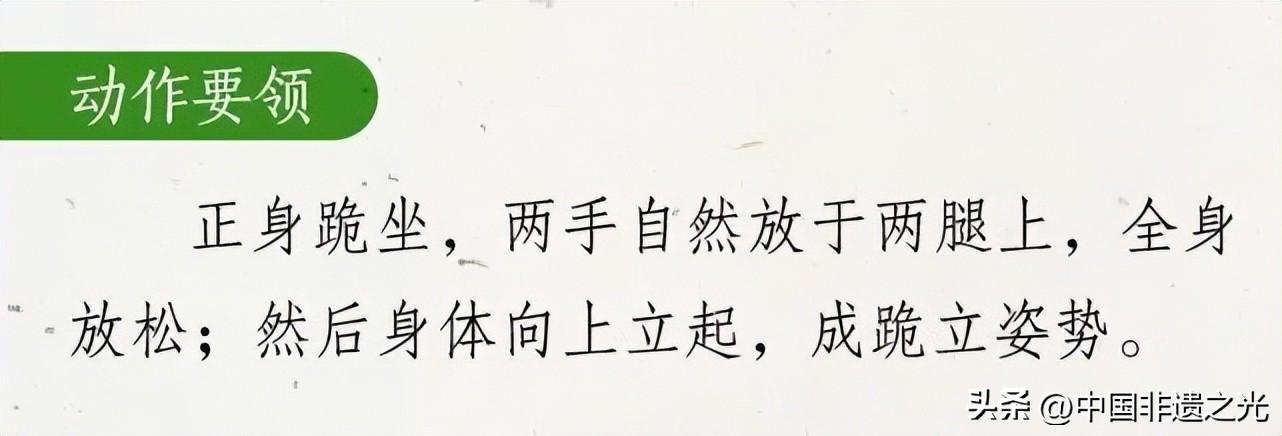 动作要领
正身跪坐，两手自然放于两腿上，全身
放松；然后身体向上立起，成跪立姿势。
头条 @中国非遗之光